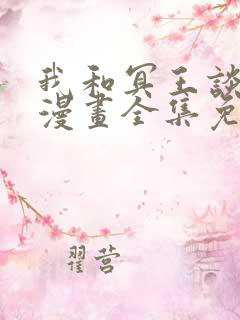 我和冥王談
漫畫全集免
翟营